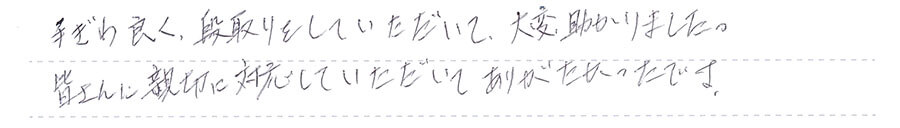 手ぎわ良く、段取りをしていただいて、大変助かりました。
皆さんに親切に対応していただいてありがたかったです。